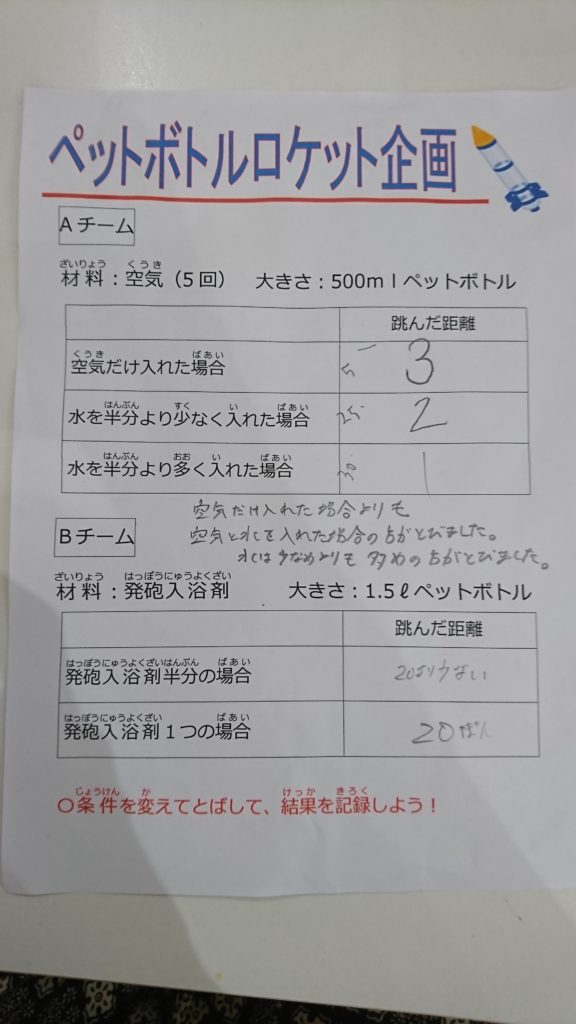 ペットボトルロケット企画
Aチーム
材料：空気（5回） 大きさ：500mlペットボトル
跳んだ距離
空気だけ入れた場合 5 3
水を半分より少なく入れた場合 25 2
水を半分より多く入れた場合 30 1
空気だけ入れた場合よりも
空気と水を入れた場合の方がとびました。
水は少なめよりも多めの方がとびました。
Bチーム
材料：発砲入浴剤 大きさ：1.5ℓペットボトル
跳んだ距離
発砲入浴剤半分の場合 20より少ない
発砲入浴剤1つの場合 20ぽん
〇条件を変えてとばして、結果を記録しよう！